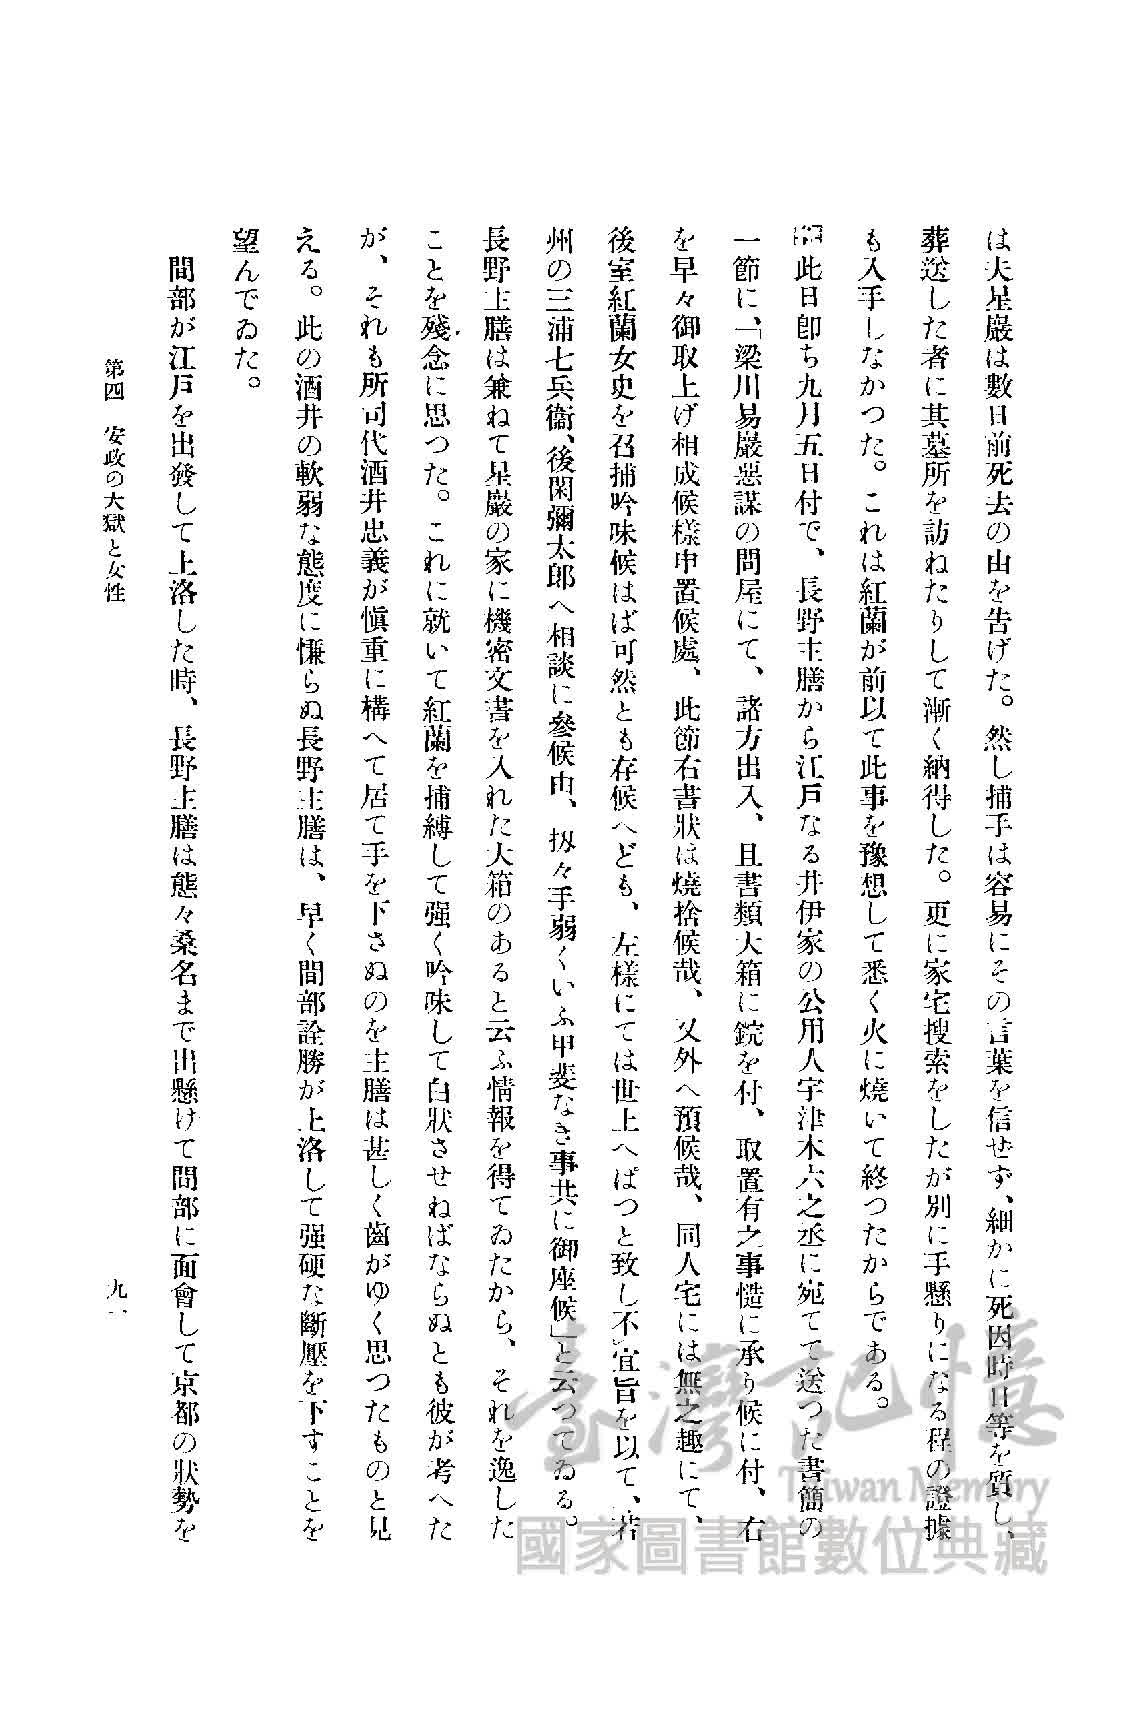 は夫星巖は數日前死去の由を告げた。然し捕手は容易にその言葉を信せず、細かに死因時日等を質し、
葬送した者に其墓所を訪ねたりして漸く納得した。更に家宅搜索をしたが別に手懸りになる程の證據
も入手しなかつた。これは紅蘭が前以て此事を豫想して悉く火に燒いて終つたからである。
此日卽ち九月五日付で、長野主膳から江戸なる井伊家の公用人宇津木六之丞に宛てて送つた書簡の
一節に、「梁川易巖惡謀の問屋にて、諸方出入、且書類大箱に錠を付、取置有之事慥に承り候に付、右
を早々御取上げ相成候樣申置候處、此節右書狀は燒捨候哉、又外へ預候哉、同人宅には無之趣にて、
後室紅蘭女史を召捕吟味候はば可然とも存候へども、左樣にては世上へぱつと致し不宜旨を以て、若
州の三浦七兵衞、後閑彌太郎へ相談に參候由、扨々手弱くいふ甲斐なき事共に御座候」と云つてゐる。
長野主膳は兼ねて星巖の家に機密文書を入れた大箱のあると云ふ情報を得てゐたから、それを逸した
ことを殘念に思つた。これに就いて紅蘭を捕縛して强く吟味して白狀させねばならぬとも彼が考へた
が、それも所司代酒井忠義が愼重に構へて居て手を下さぬのを主膳は甚しく齒がゆく思つたものと見
える。此の酒井の軟弱な態度に慊らぬ長野主膳は、早く間部詮勝が上洛して强硬な斷壓を下すことを
望んでゐた。
間部が江戸を出發して上洛した時、長野主膳は態々桑名まで出懸けて間部に面會して京都の狀勢を
第四 安政の大獄と女性
九一
臺灣記憶
Taiwan Memory
國家圖書館數位典藏